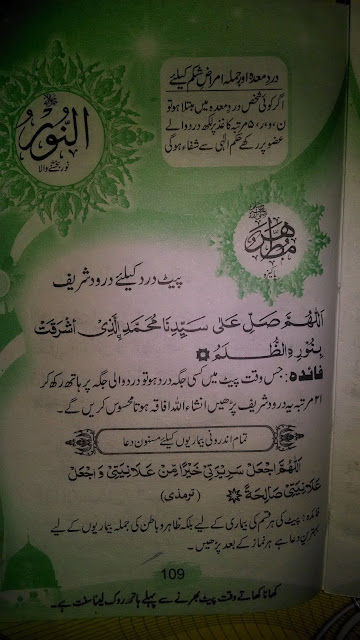 النُّور
نور بخشنے والا
دردِ معدہ اور جملہ امراضِ شکم کیلئے
اگر کوئی شخص دردِ معدہ میں مبتلا ہو تو
ن، و، ر، ۵ مرتبہ کاغذ پر لکھ درد والے
عضو پر رکھے بحکم الٰہی سے شفاء ہوگی
مُطَهِّر
پاکیزہ
پیٹ درد کیلئے درود شریف
اَللّٰهُمَّ صَلِّ عَلٰى سَيِّدِنَا مُحَمَّدِ ۨالَّذِىْ اَشْرَقَتْ
بِنُوْرِهِ الظُّلَمُ
فائدہ: جس وقت پیٹ میں کسی جگہ درد ہو تو درد والی جگہ پر ہاتھ رکھ کر
۲۱ مرتبہ یہ درود شریف پڑھیں انشاء اللہ افاقہ ہوتا محسوس کریں گے۔
تمام اندرونی بیماریوں کیلئے مسنون دعا
اَللّٰهُمَّ اجْعَلْ سَرِيْرَتِىْ خَيْرًا مِّنْ عَلَانِيَتِىْ وَاجْعَلْ
عَلَانِيَتِىْ صَالِحَةً (ترمذی)
فائدہ: پیٹ کی ہر قسم کی بیماری کے لیے بلکہ ظاہر و باطن کی جملہ بیماریوں کے لیے
بہترین دعا ہے ہر نماز کے بعد پڑھیں۔
109
کھانا کھاتے وقت پیٹ بھرنے سے پہلے ہاتھ روک لینا سنت ہے۔